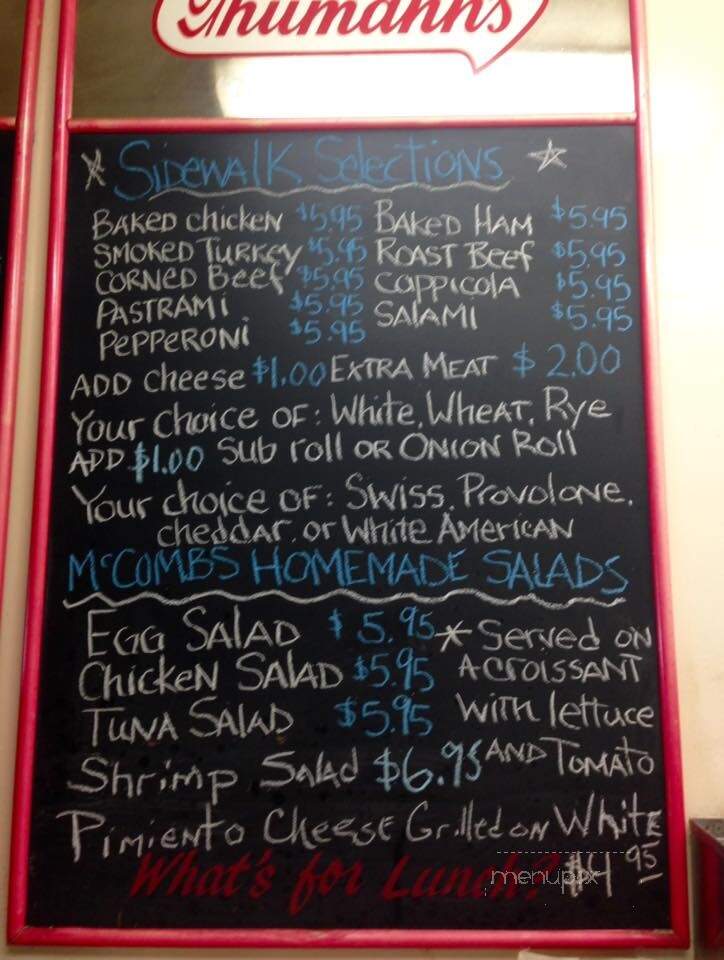 Thumann's
Sidewalk Selections
Baked chicken $5.95 Baked Ham $5.95
Smoked Turkey $5.95 Roast Beef $5.95
Corned Beef $5.95 Cappicola $5.95
Pastrami $5.95 Salami $5.95
Pepperoni $5.95
Add cheese $1.00 Extra Meat $2.00
Your choice of: White, Wheat, Rye
Add $1.00 Sub roll or Onion Roll
Your choice of: Swiss, Provolone,
cheddar, or White American
McCombs Homemade Salads
Egg Salad $5.95 * Served on
Chicken Salad $5.95 a croissant
Tuna Salad $5.95 with lettuce
Shrimp Salad $6.95 and Tomato
Pimiento Cheese Grilled on White
What's for Lunch? $4.95
menupix